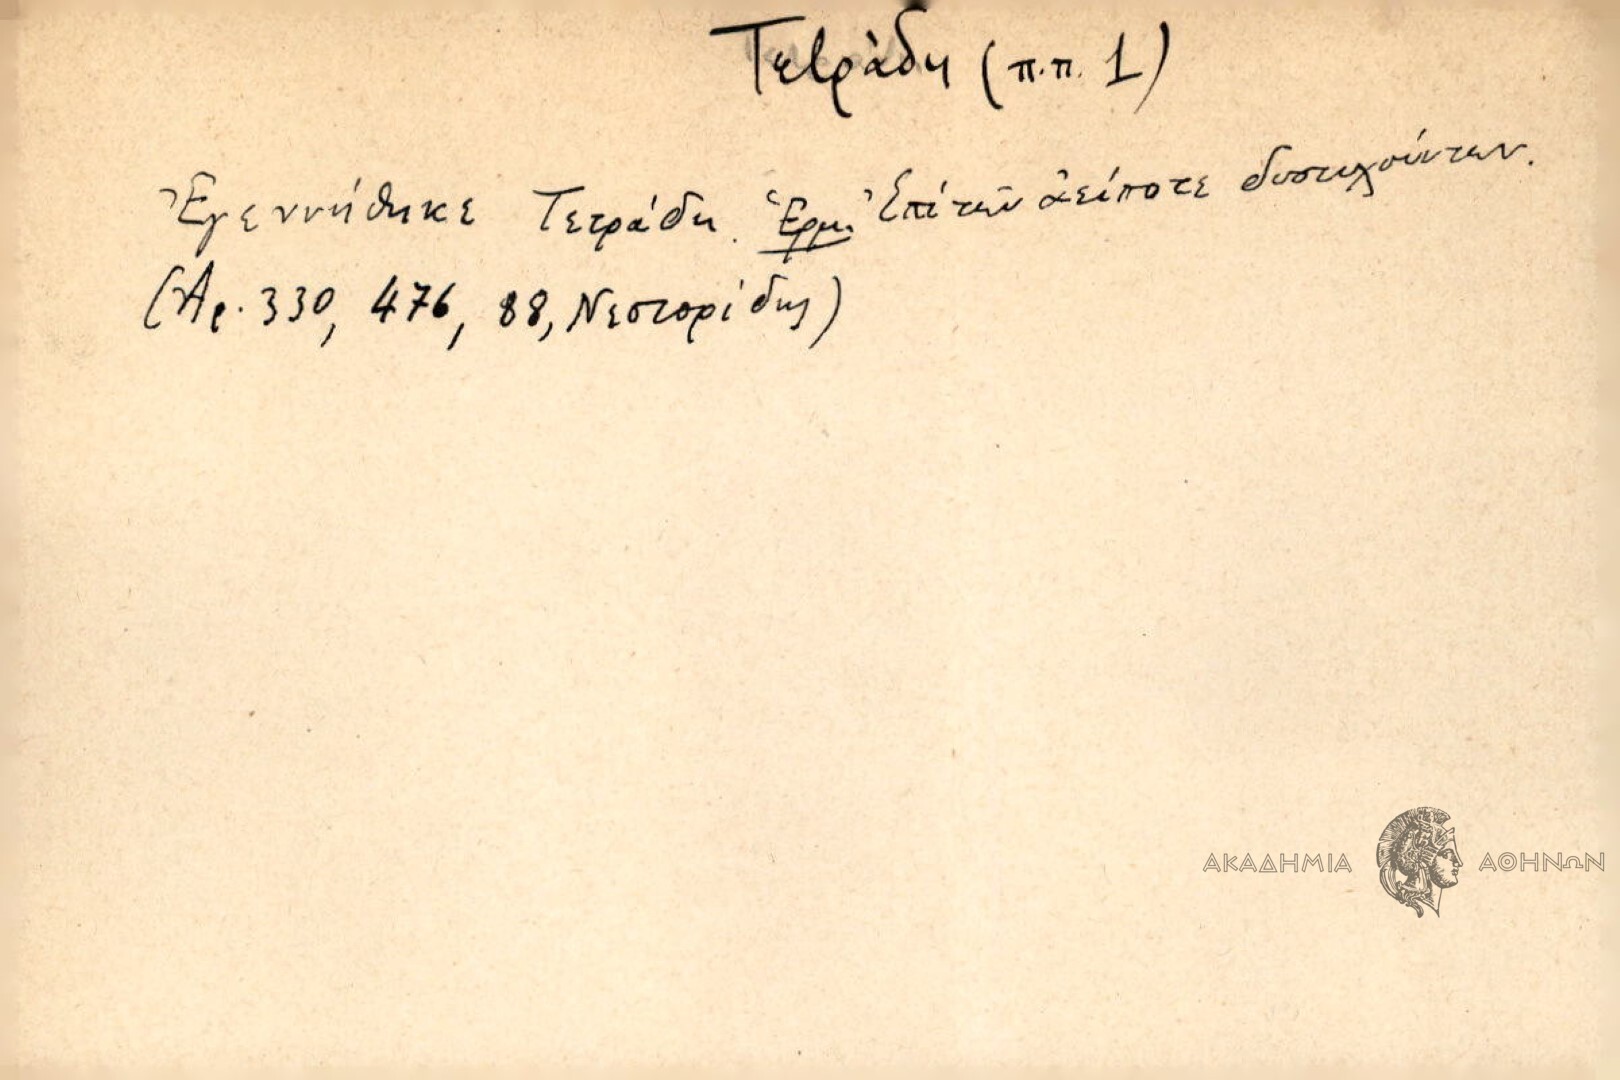 Τετράδη (π.π. 1)
Ἐγεννήθηκε Τετράδη. Ἑρμ. Ἐπὶ τῶν ἀείποτε δυστυχούντων.
(Ἀρ. 330, 476, 88, Νεστορίδης)
ΑΚΑΔΗΜΙΑ ΑΘΗΝΩΝ